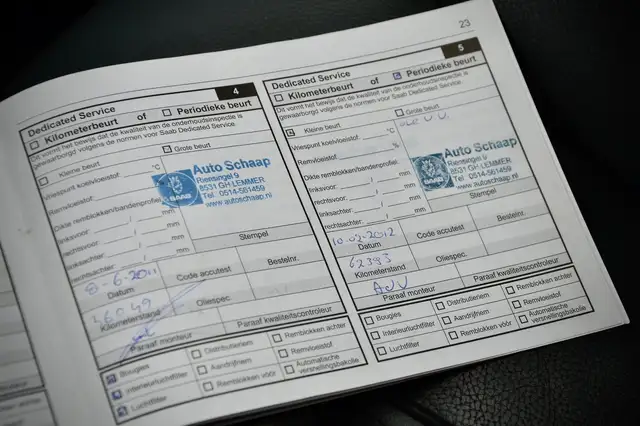 23
4
Dedicated Service
Kilometerbeurt of Periodieke beurt
Dit vormt het bewijs dat de kwaliteit van de onderhoudsinspectie is
gewaarborgd volgens de normen voor Saab Dedicated Service.
Kleine beurt Grote beurt
Vriespunt koelvloeistof: °C
Remvloeistof:
Dikte remblokken/bandenprofiel:
linksvoor: / mm
rechtsvoor: / mm
linksachter: / mm
rechtsachter: / mm
SAAB
Auto Schaap
Riensingel 9
8531 GH LEMMER
Tel. 0514-561459
www.autoschaap.nl
Stempel
8-6-2011
Datum
Code accutest
Bestelnr.
46049
Kilometerstand
Oliespec.
Paraaf monteur
Paraaf kwaliteitscontroleur
Bougies
Distributieriem
Remblokken achter
Interieurluchtfilter
Aandrijfriem
Remvloeistof
Luchtfilter
Remblokken vóór
Automatische
versnellingsbakolie
5
Dedicated Service
Kilometerbeurt of Periodieke beurt
Dit vormt het bewijs dat de kwaliteit van de onderhoudsinspectie is
gewaarborgd volgens de normen voor Saab Dedicated Service.
Kleine beurt Grote beurt
Vriespunt koelvloeistof: °C
Remvloeistof:
Dikte remblokken/bandenprofiel:
linksvoor: / mm
rechtsvoor: / mm
linksachter: / mm
rechtsachter: / mm
SAAB
Auto Schaap
Riensingel 9
8531 GH LEMMER
Tel. 0514-561459
www.autoschaap.nl
Stempel
10-02-2012
Datum
Code accutest
Bestelnr.
62393
Kilometerstand
Oliespec.
Paraaf monteur
Paraaf kwaliteitscontroleur
Bougies
Distributieriem
Remblokken achter
Interieurluchtfilter
Aandrijfriem
Remvloeistof
Luchtfilter
Remblokken vóór
Automatische
versnellingsbakolie